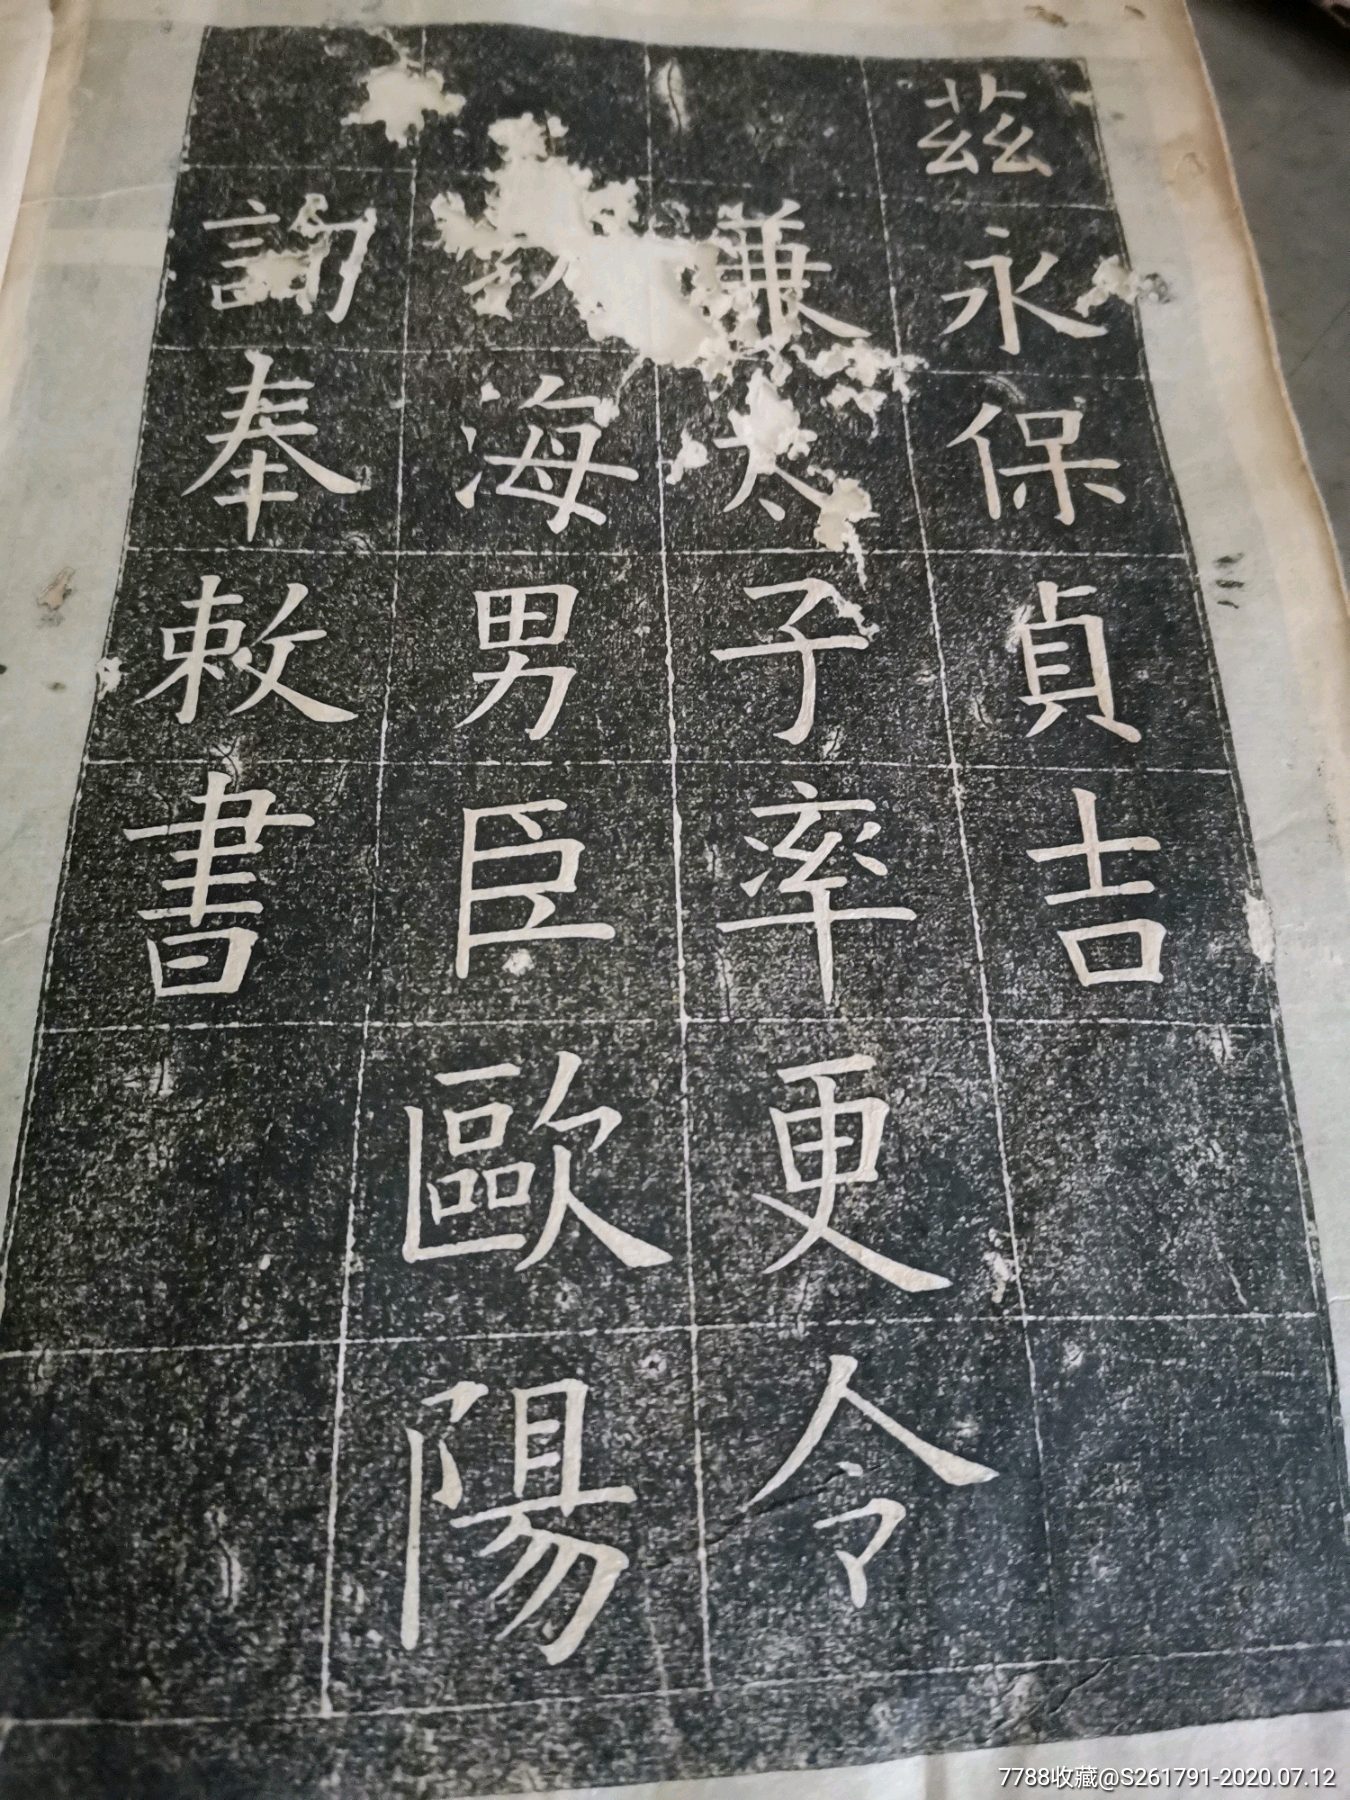 茲永保貞吉
兼太子率更令
海男臣歐陽
詢奉敕書
7788收藏@S261791-2020.07.12